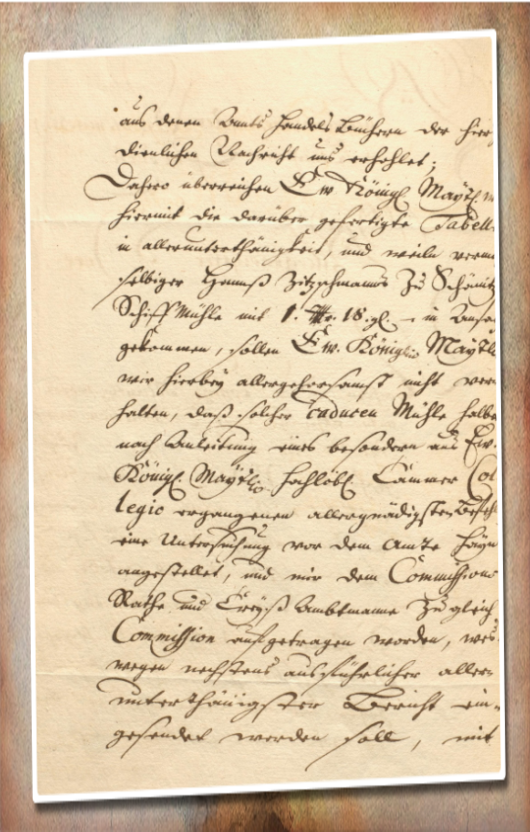 aus denen Ambts Handels Büchern der hier
dienlichen Nachricht uns erhohlet;
Dahero überreichen Ew Königl. Maytt.
hiermit die darüber gefertigte Tabell
in allerunterthänigkeit, und weiln verm
selbiger Zu
Schiff Mühle mit 1. 18. gl. in
gekommen, sollen Ew. Königl. Maytt.
wir hierbey allergehorsamst nicht ver
halten, daß solcher caducen Mühle halbe
nach Anleitung eines besondern aus Ew.
Königl. Maytt. hochlöbl. Cammer Col
legio ergangenen allergnädigsten Befehl
eine Untersuchung vor dem Amte
angestellet, und mir dem Commissions
Rathe und Creyß Ambtmanne Zugleich
Commission aufgetragen worden, wes
wegen nechstens ausführlicher aller-
unterthänigster Bericht ein-
gesendet werden soll, mit